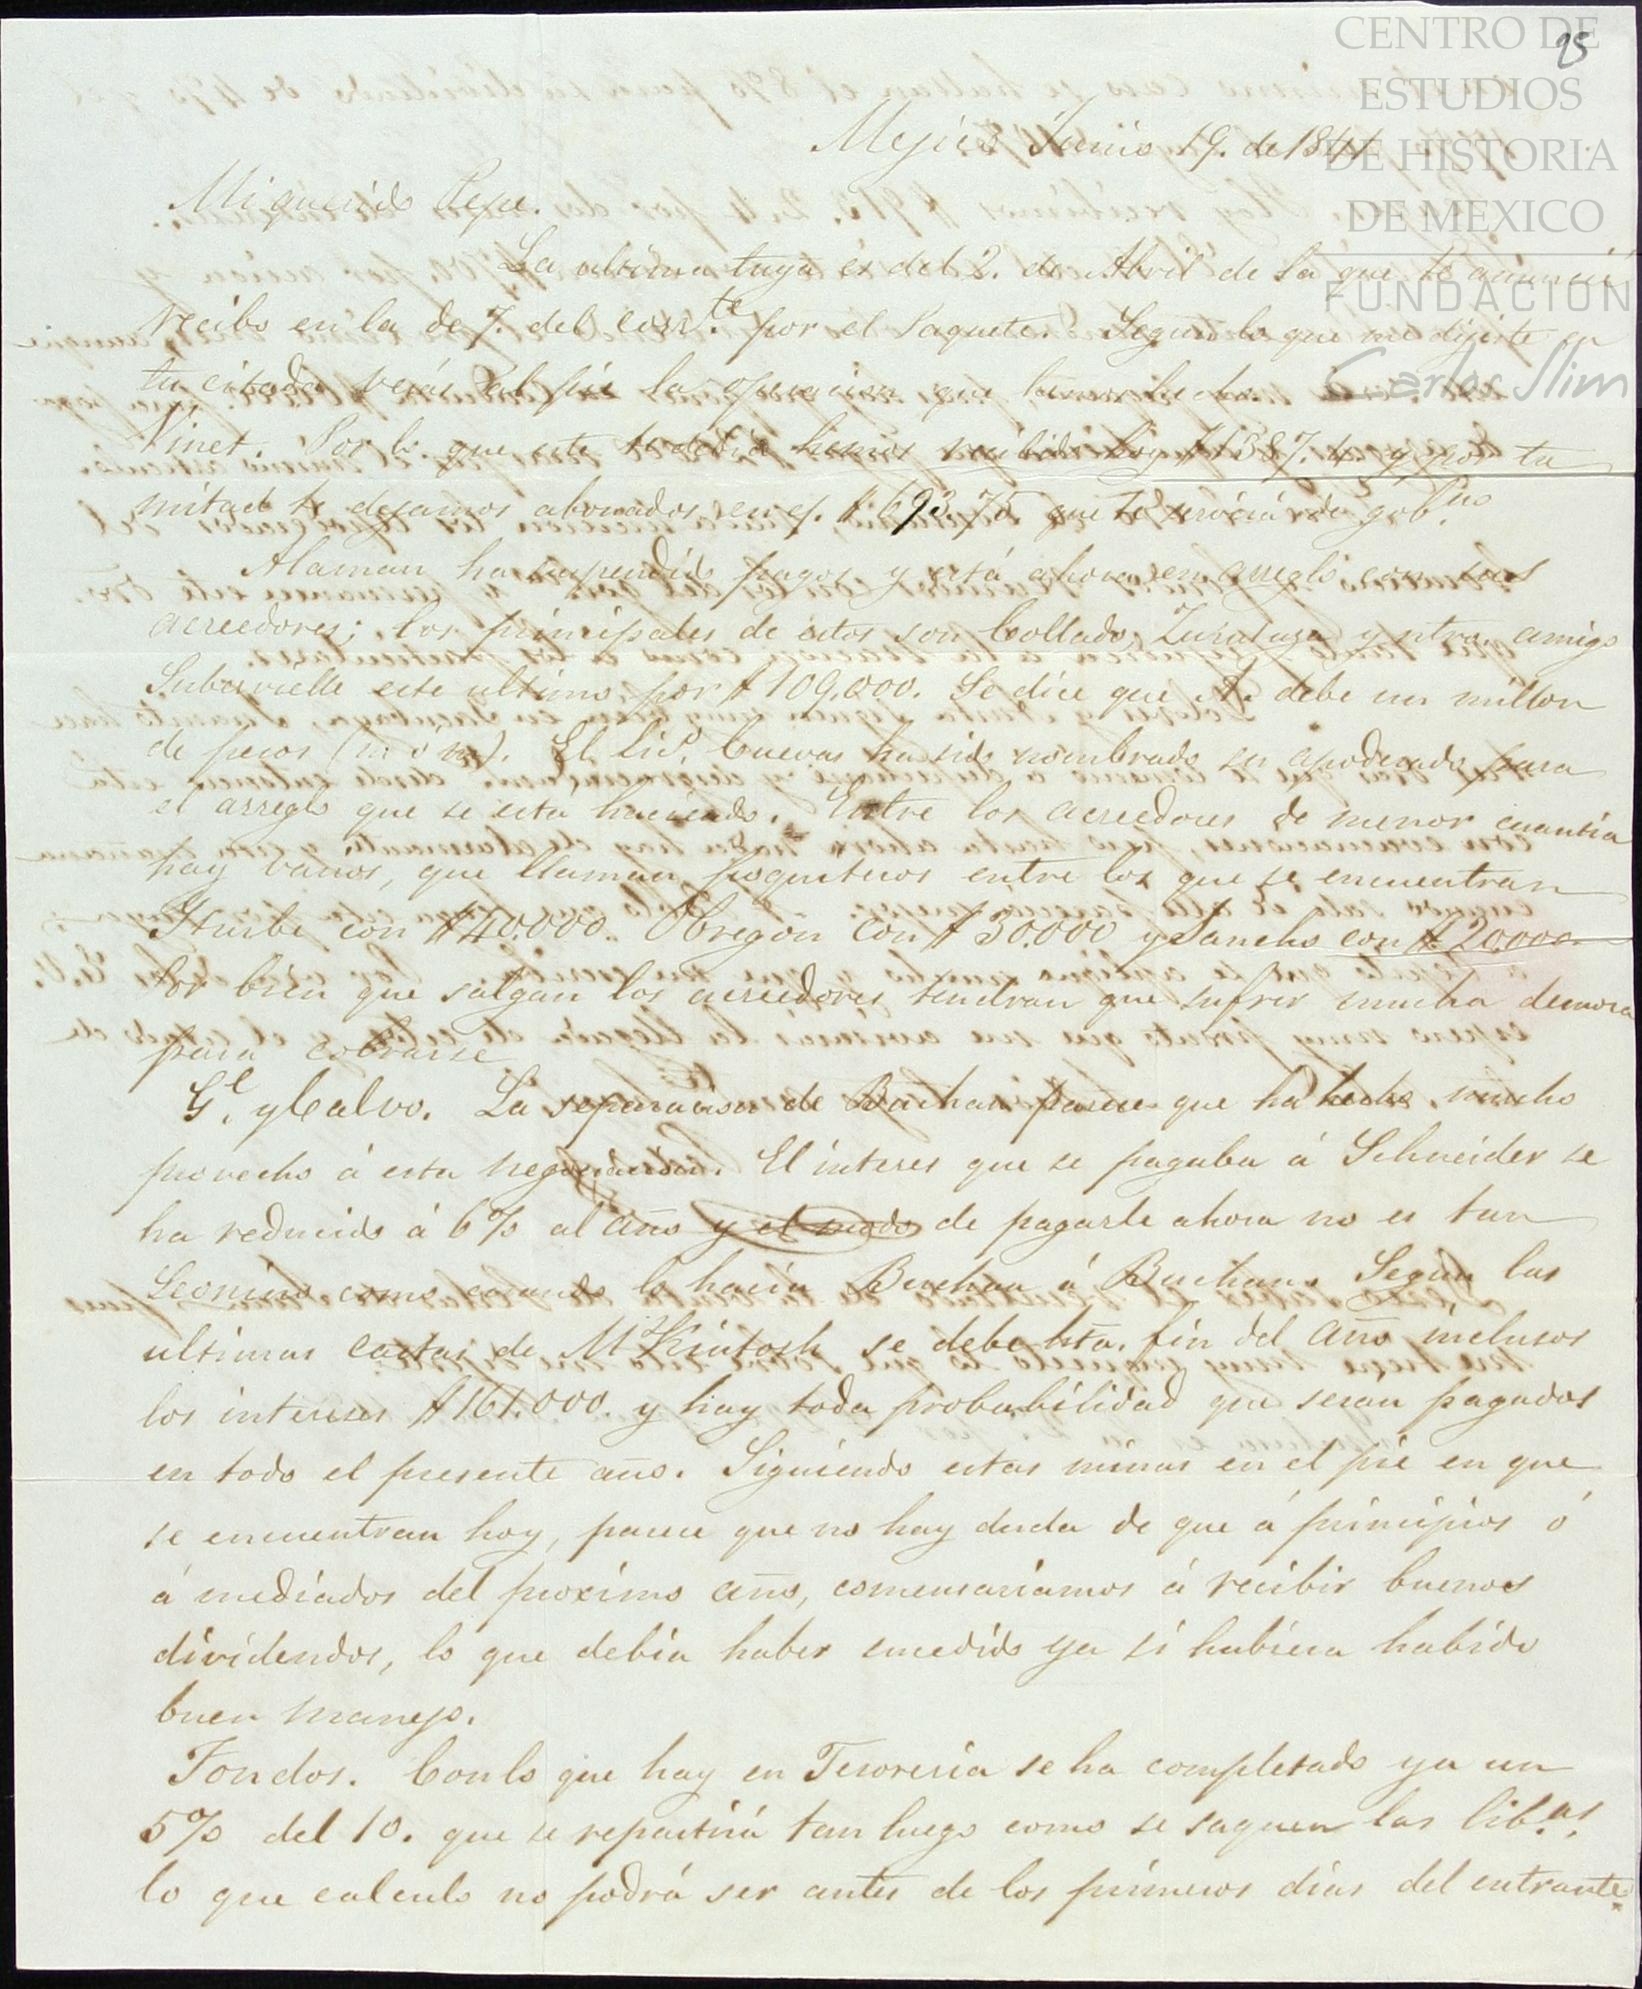 25
CENTRO DE
ESTUDIOS
DE HISTORIA
DE MEXICO
FUNDACION
Carlos Slim
Mejico Junio 19. de 1841
Mi querido Pepe.
La ultima tuya es del 2. de Abril de la que te anuncié
recibo en la de 7. del corr.te por el Paquete. Segun lo que me dijiste en
tu citada verás al pie la operacion que hemos hecho.
Vinet. Por lo que este te debia hemos recibido hoy $1387.4 y por tu
mitad te dejamos abonados en c/. $693.75 que te servirá de gob.no
Alaman ha suspendido pagos y está ahora en arreglo con sus
acreedores; los principales de estos son Collado, Zurutuza y ntro. amigo
Subervielle este ultimo por $109.000. Se dice que A. debe un millon
de pesos (m ó m). El Lic.o Cuevas ha sido nombrado su apoderado para
el arreglo que se está haciendo. Entre los acreedores de menor cuantia
hay varios, que llaman poquiteros entre los que se encuentran
Iturbe con $40.000. Obregon con $30.000 y Sancho con $20.000.
Por bien que salgan los acreedores tendran que sufrir mucha demora
para cobrarse
G.e y Calvo. La separacion de Buchan parece que ha hecho mucho
provecho á esta negociacion. El interes que se pagaba á Schneider se
ha reducido á 6% al año y el modo de pagarle ahora no es tan
Leonino como cuando lo hacia Buchan á Buchan. Segun las
ultimas cartas de McKintosh se debe hta. fin del año inclusos
los intereses $161.000. y hay toda probabilidad que seran pagados
en todo el presente año. Siguiendo estas minas en el pie en que
se encuentran hoy, parece que no hay duda de que á principios ó
á mediados del proximo año, comensariamos á recibir buenos
dividendos, lo que debia haber sucedido ya si hubiera habido
buen manejo.
Fondos. Con lo que hay en Tesoreria se ha completado ya un
5% del 10. que se repartirá tan luego como se saquen las lib.as,
lo que calculo no podrá ser antes de los primeros dias del entrante.